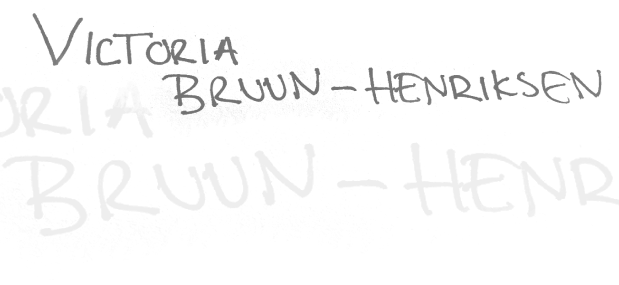 VICTORIA
BRUUN-HENRIKSEN
ORIA
BRUUN-HENR